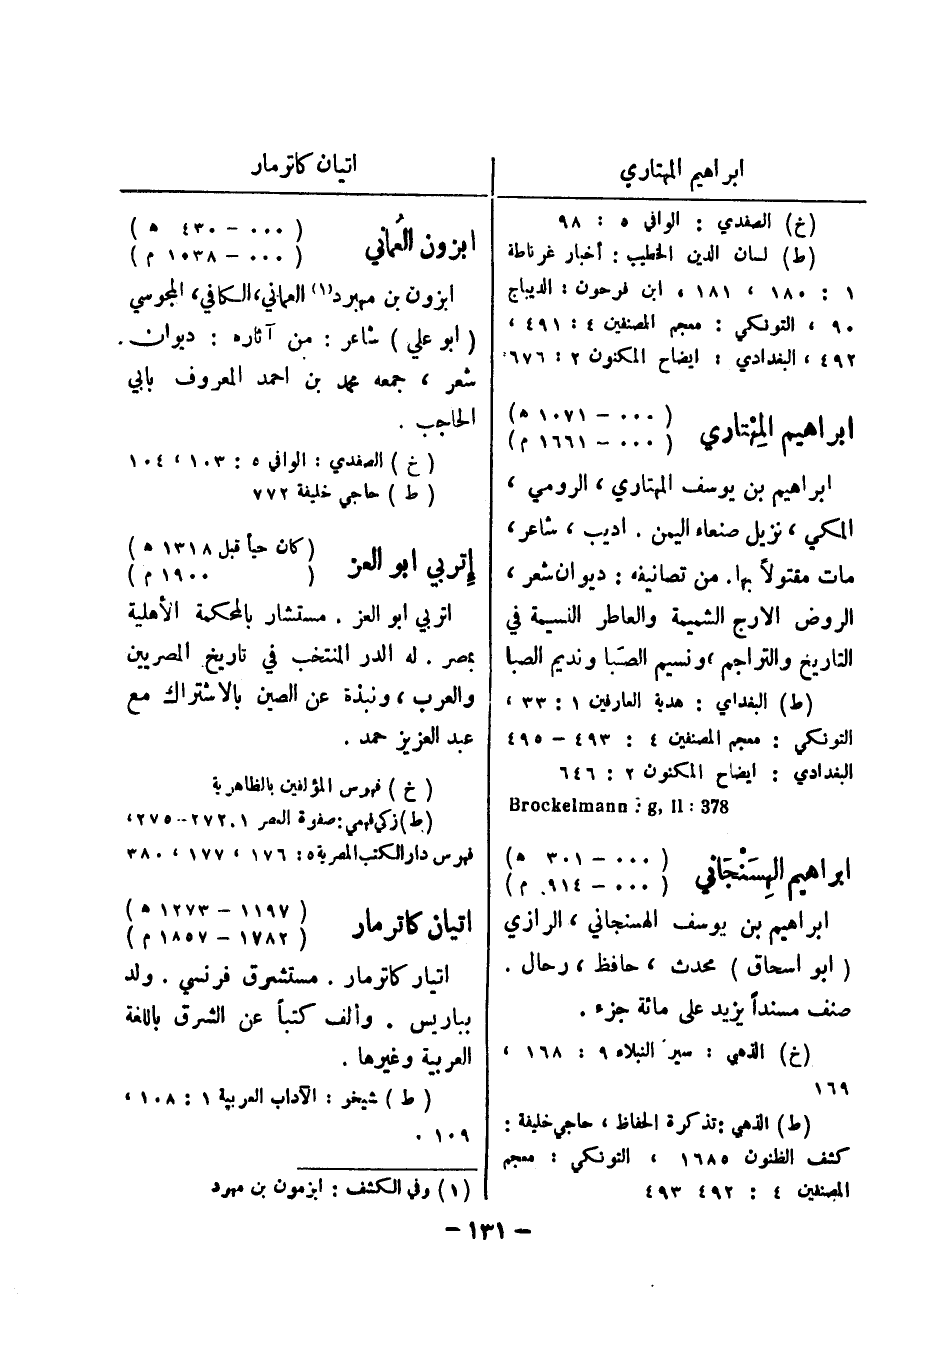 ابراهيم المهتاري
(خ) الصفدي : الوافي ٥ : ٩٨
(ط) لسان الدين الخطيب : أخبار غرناطة
١ : ١٨٠ ، ١٨١ ، ابن فرحون : الديباج
٩٠ ، التونكي : معجم المصنفين ٤ : ٤٩١ ،
٤٩٢ ، البغدادي : ايضاح المكنون ٢ : ٦٧٦
ابراهيم المِهْتاري (٠٠٠ – ١٠٧١ هـ)
(٠٠٠ – ١٦٦١ م)
ابراهيم بن يوسف المهتاري ، الرومي ،
المكي ، نزيل صنعاء اليمن . اديب ، شاعر ،
مات مقتولاً بها. من تصانيفه : ديوان شعر ،
الروض الارج الشميمة والعاطر النسيمة في
التاريخ والتراجم ،ونسيم الصَبا ونديم الصبا
(ط) البغداي : هدية العارفين ١ : ٣٣ ،
التونكي : معجم المصنفين ٤ : ٤٩٣ – ٤٩٥
البغدادي : ايضاح المكنون ٢ : ٦٤٦
Brockelmann : g, II : 378
ابراهيم الهِسَنْجَاني (٠٠٠ – ٣٠١ هـ)
(٠٠٠ – ٩١٤ م)
ابراهيم بن يوسف الهسنجاني ، الرازي
( ابو اسحاق ) محدث ، حافظ ، رحال .
صنف مسنداً يزيد على مائة جزء .
(خ) الذهبي : سير النبلاء ٩ : ١٦٨ ،
١٦٩
(ط) الذهبي :تذكرة الحفاظ ، حاجي خليفة :
كشف الظنون ١٦٨٥ ، التونكي : معجم
المصنفين ٤ : ٤٩٢ ٤٩٣
اتيان كاترمار
ابزون العُماني (٠٠٠ – ٤٣٠ هـ)
(٠٠٠ – ١٠٣٨ م)
ابزون بن مهبرد(١) العماني، الكافي، المجوسي
( ابو علي ) شاعر : من آثاره : ديوان
شعر ، جمعه محمد بن احمد المعروف بابي
الحاجب .
(خ) الصفدي : الوافي ٥ : ١٠٣ ، ١٠٤
(ط) حاجي خليفة ٧٧٢
إتربي ابو العز (كان حياً قبل ١٣١٨ هـ)
( ١٩٠٠ م)
اتربي ابو العز . مستشار بالمحكمة الأهلية
بمصر . له الدر المنتخب في تاريخ المصريين
والعرب ، ونبذة عن الصين بالاشتراك مع
عبد العزيز حمد .
(خ) فهرس المؤلفين بالظاهرية
(ط) زكي فهمي : صفوة العصر ١، ٢٧٢ – ٢٧٥ ،
فهرس دار الكتب المصرية ٥ : ١٧٦ ، ١٧٧ ، ٣٨٠
اتيان كاترمار (١١٩٧ – ١٢٧٣ هـ)
(١٧٨٢ – ١٨٥٧ م)
اتيار كاترمار . مستشرق فرنسي . ولد
بباريس . وألف كتباً عن الشرق باللغة
العربية وغيرها .
(ط) شيخو : الآداب العربية ١ : ١٠٨ ،
١٠٩ .
(١) وفي الكشف : ابزمون بن مهرد
– ١٣١ –